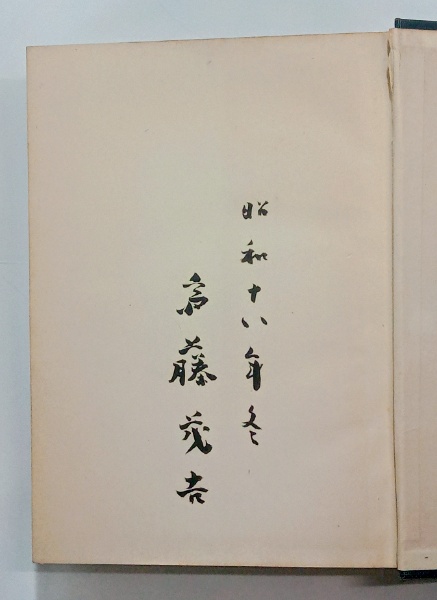 昭和十八年冬
斎藤茂吉